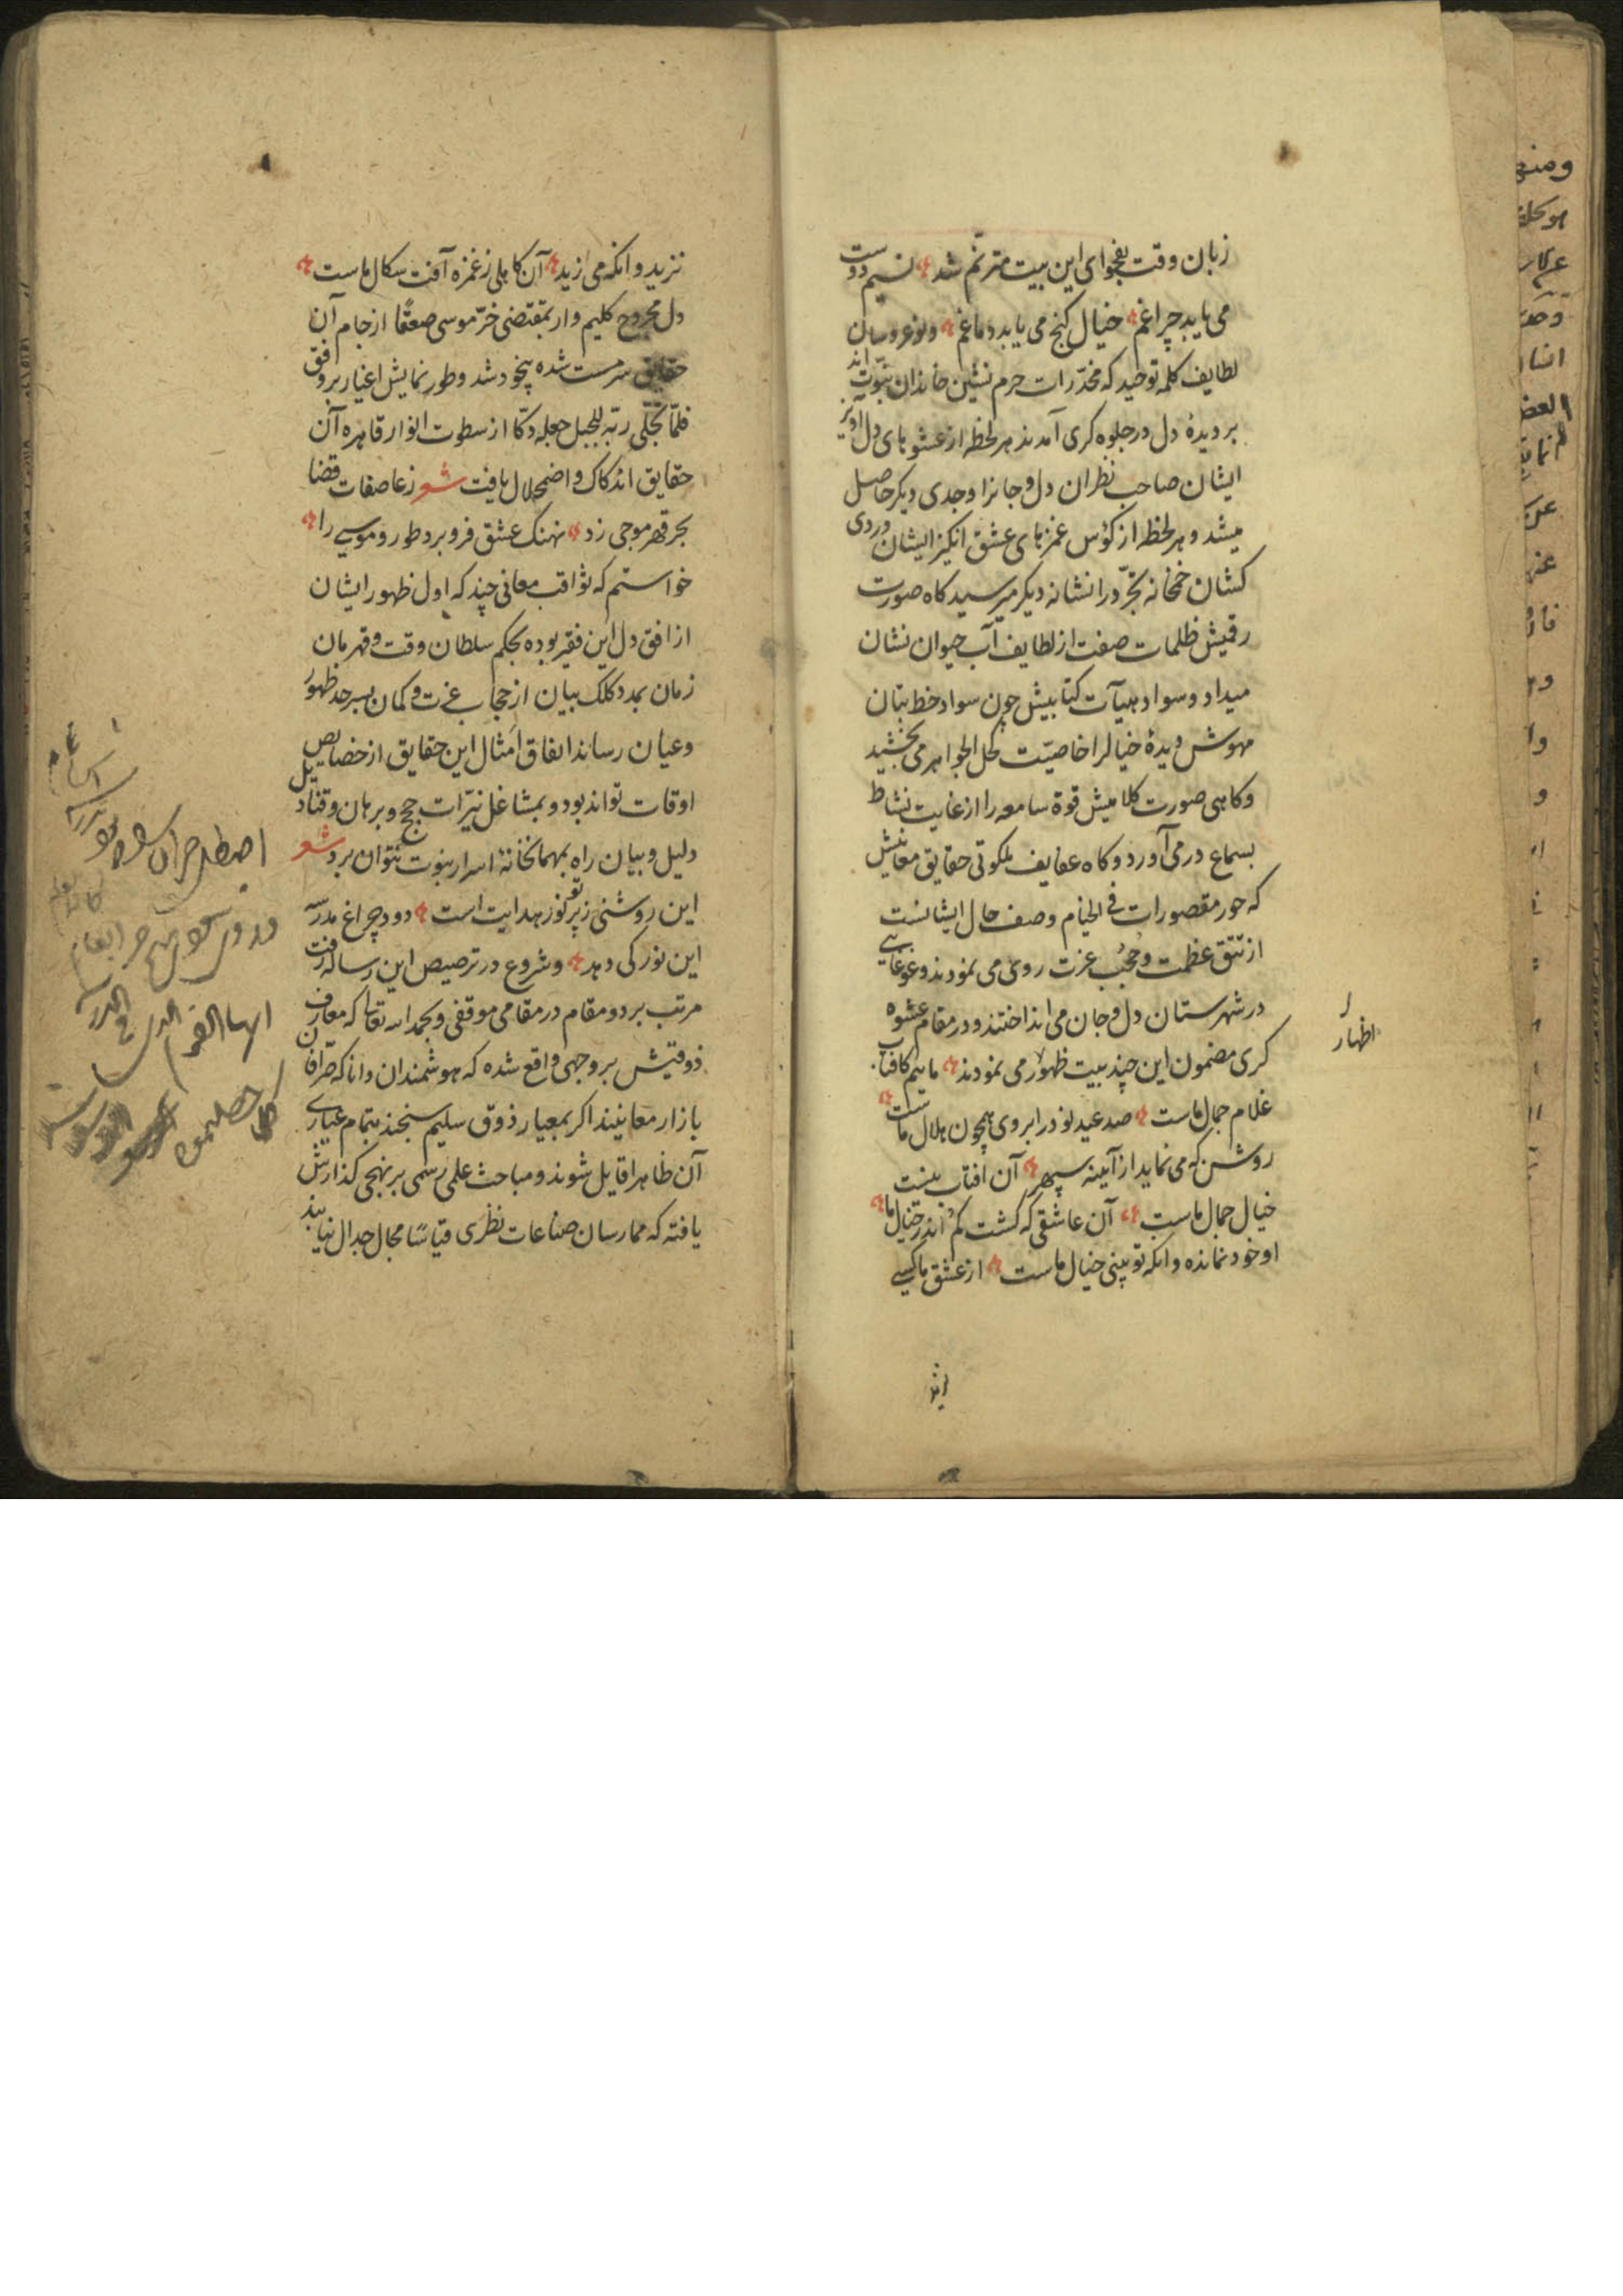 زبان وقت بفحوای این بیت مترنم شد نسیم دوست
می یابد چراغم خیال کنج می یابد دماغم ونوعروسان
لطایف کلمه توحید که مخدّرات حرم نشین خاندان نبوّت اند
بر دیدهٔ دل در جلوه کری آمدند هر لحظه از عشوهای دل آویز
ایشان صاحب نظران دل و جانرا وجدی دیکر حاصل
میشد و هر لحظه از کؤس غمزهای عشق انکیز ایشان دردی
کشان خمخانه تجرّد را نشانه دیکر میرسید کاه صورت
رقیش ظلمات صفت از لطایف آب حیوان نشان
میداد و سواد هیآت کتابیش چون سواد خط بتان
مهوش دیدهٔ خیالرا خاصیّت کحل الجواهر می بخشید
و کاهی صورت کلامیش قوة سامعه را از غایت نشاط
بسماع در می آورد و کاه عفایف ملکوتی حقایق معانیش
که حور مقصورات فی الخیام وصف حال ایشانست
از تتق عظمت و حجب عزت روی می نمودند و غوغایی
در شهرستان دل و جان می انداختند و در مقام عشوه
کری مضمون این چند بیت ظهور می نمودند ماییم کافتاب
غلام جمال ماست صد عید نو در ابروی همچون هلال ماست
روشن که می نماید از آیینه سپهر آن افتاب نیست
خیال جمال ماست آن عاشقی که کشت کم اندر خیال ما
او خود نمانده وانکه تو بینی خیال ماست از عشق ما کسی
اظهار
نزید وانکه می ازید آن کاملی ز غمزه آفت سکال ماست
دل مجروح کلیم وار بمقتضی خرّ موسی صعقًا از جام آن
حقایق سرمست شده بیخود شد و طور نمایش اغیار بر وفق
فلمّا تجلّی ربّه للجبل جعله دکّا از سطوت انوار قاهره آن
حقایق اندکاک و اضمحلال یافت شعر ز عاصفات قضا
بحر قهر موجی زد نهنک عشق فرو برد طور و موسی را
خواستم که ثواقب معانی چند که اول ظهور ایشان
از افق دل این فقیر بوده بحکم سلطان وقت و قهرمان
زمان بمدد کلک بیان از حجاب عزت و کمان بسرحد ظهور
و عیان رساند اتفاق امثال این حقایق از خصایص
اوقات تواند بود و بمشاعل نیّرات حجج و برهان و قنادیل
دلیل و بیان راه بنهانخانهٔ اسرار نبوت نتوان برد شعر
این روشنی ز پرتو نور هدایت است دود چراغ مدرسه
این نور کی دهد و شروع در ترصیص این رساله رفت
مرتب بر دو مقام در مقامی موقفی و بحمد الله تعالی که معارف
ذوقیش بر وجهی واقع شده که هوشمندان دانا که صرّافان
بازار معانیند اکر بمعیار ذوق سلیم سنجند بتمام عیاری
آن ظاهرا قایل شوند و مباحث علمی رسمی بر نهجی کذارش
یافته که ممارسان صناعات نظری قیاسًا مجال جدال نیابند